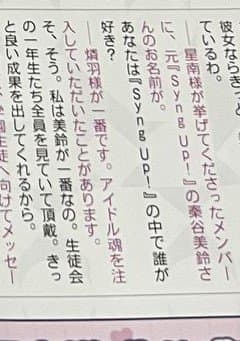 彼女ならきっと
ているわ。
――星南様が挙げてくださったメンバー
に、元『Syng Up!』の秦谷美鈴さ
んのお名前が。
あなたは『Syng Up!』の中で誰が
好き?
――燐羽様が一番です。アイドル魂を注
入していただいたことがあります。
そ、そう。私は美鈴が一番なの。生徒会
の一年生たち全員を見ていて頂戴。きっ
と良い成果を出してくれるから。
生徒へ向けてメッセー